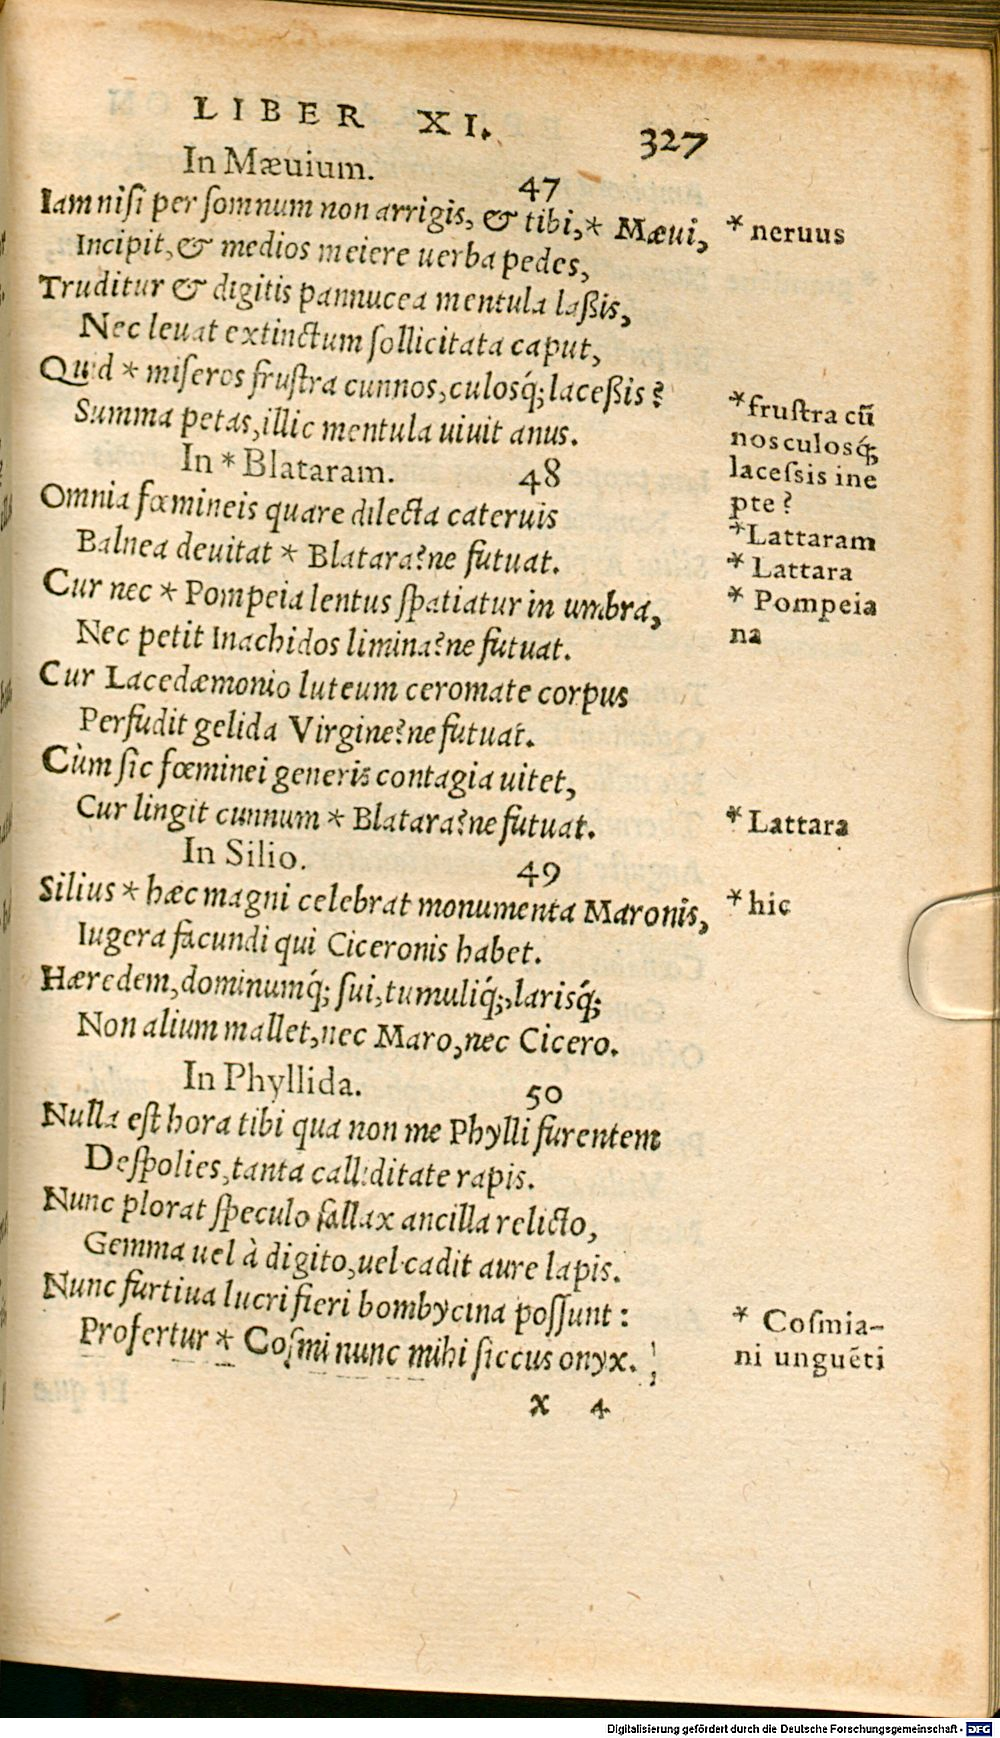 LIBER XI. 327
In Mæuium. 47
Iam nisi per somnum non arrigis, & tibi,* Mæui, * neruus
Incipit, & medios meiere uerba pedes,
Truditur & digitis pannucea mentula laßis,
Nec leuat extinctum sollicitata caput,
Quid * miseros frustra cunnos, culosq́; laceßis? *frustra cū
Summa petas, illic mentula uiuit anus. nos culosq́;
In * Blataram. 48 lacessis ine
Omnia fœmineis quare dilecta cateruis pte?
Balnea deuitat * Blatara? ne futuat. *Lattaram
* Lattara
Cur nec * Pompeia lentus spatiatur in umbra, * Pompeia
Nec petit Inachidos limina? ne futuat. na
Cur Lacedæmonio luteum ceromate corpus
Perfudit gelida Virgine? ne futuat.
Cùm sic fœminei generis contagia uitet,
Cur lingit cunnum * Blatara? ne futuat. * Lattara
In Silio. 49
Silius * hæc magni celebrat monumenta Maronis, * hic
Iugera facundi qui Ciceronis habet.
Hæredem, dominumq́; sui, tumuliq́;, larisq́;
Non alium mallet, nec Maro, nec Cicero.
In Phyllida. 50
Nulla est hora tibi qua non me Phylli furentem
Despolies, tanta calliditate rapis.
Nunc plorat speculo fallax ancilla relicto,
Gemma uel à digito, uel cadit aure lapis.
Nunc furtiua lucri fieri bombycina possunt: * Cosmia-
Profertur * Cosmi nunc mihi siccus onyx. ni unguēti
x 4
Digitalisierung gefördert durch die Deutsche Forschungsgemeinschaft - DFG